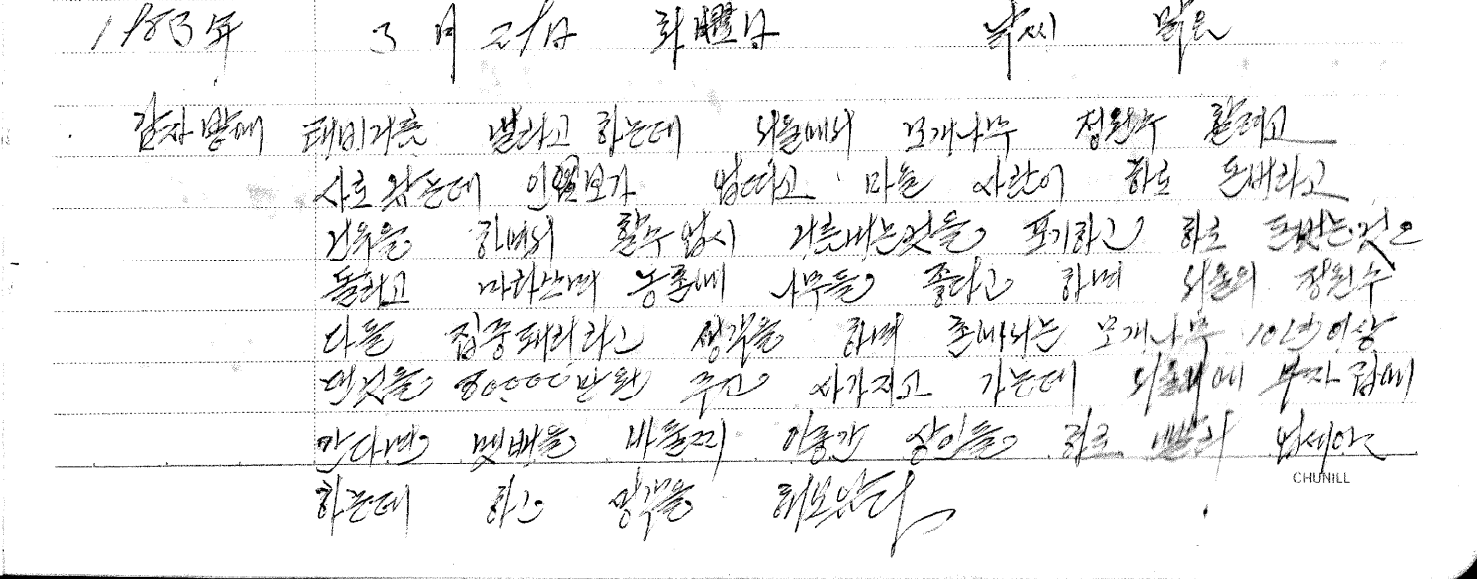 1983年 3月 29日 화曜日 날씨 맑음
감자 밭에 태비거름 낼라고 하는데 서울에서 모개나무 정원수 할려고
사로 왔는데 인부가 업따고 마늘 사람이 하로 돈버라고
하면서 할수 업시 거름내는것을 포기하고 하로 돈벗는것으
돌리고 농촌에 나무들 좋다고 하며 서울의 정원수
다들 집중돼리라고 생각을 하며 모개나무 10년이상
댄것을 800000만원 주고 사가지고 가는데 서울에 부자 집에
간다면 몟배을 바들찌 이중간 상인들 하로 빨리 업세야
하는데 하고 생각을 해보았다
CHUNILL